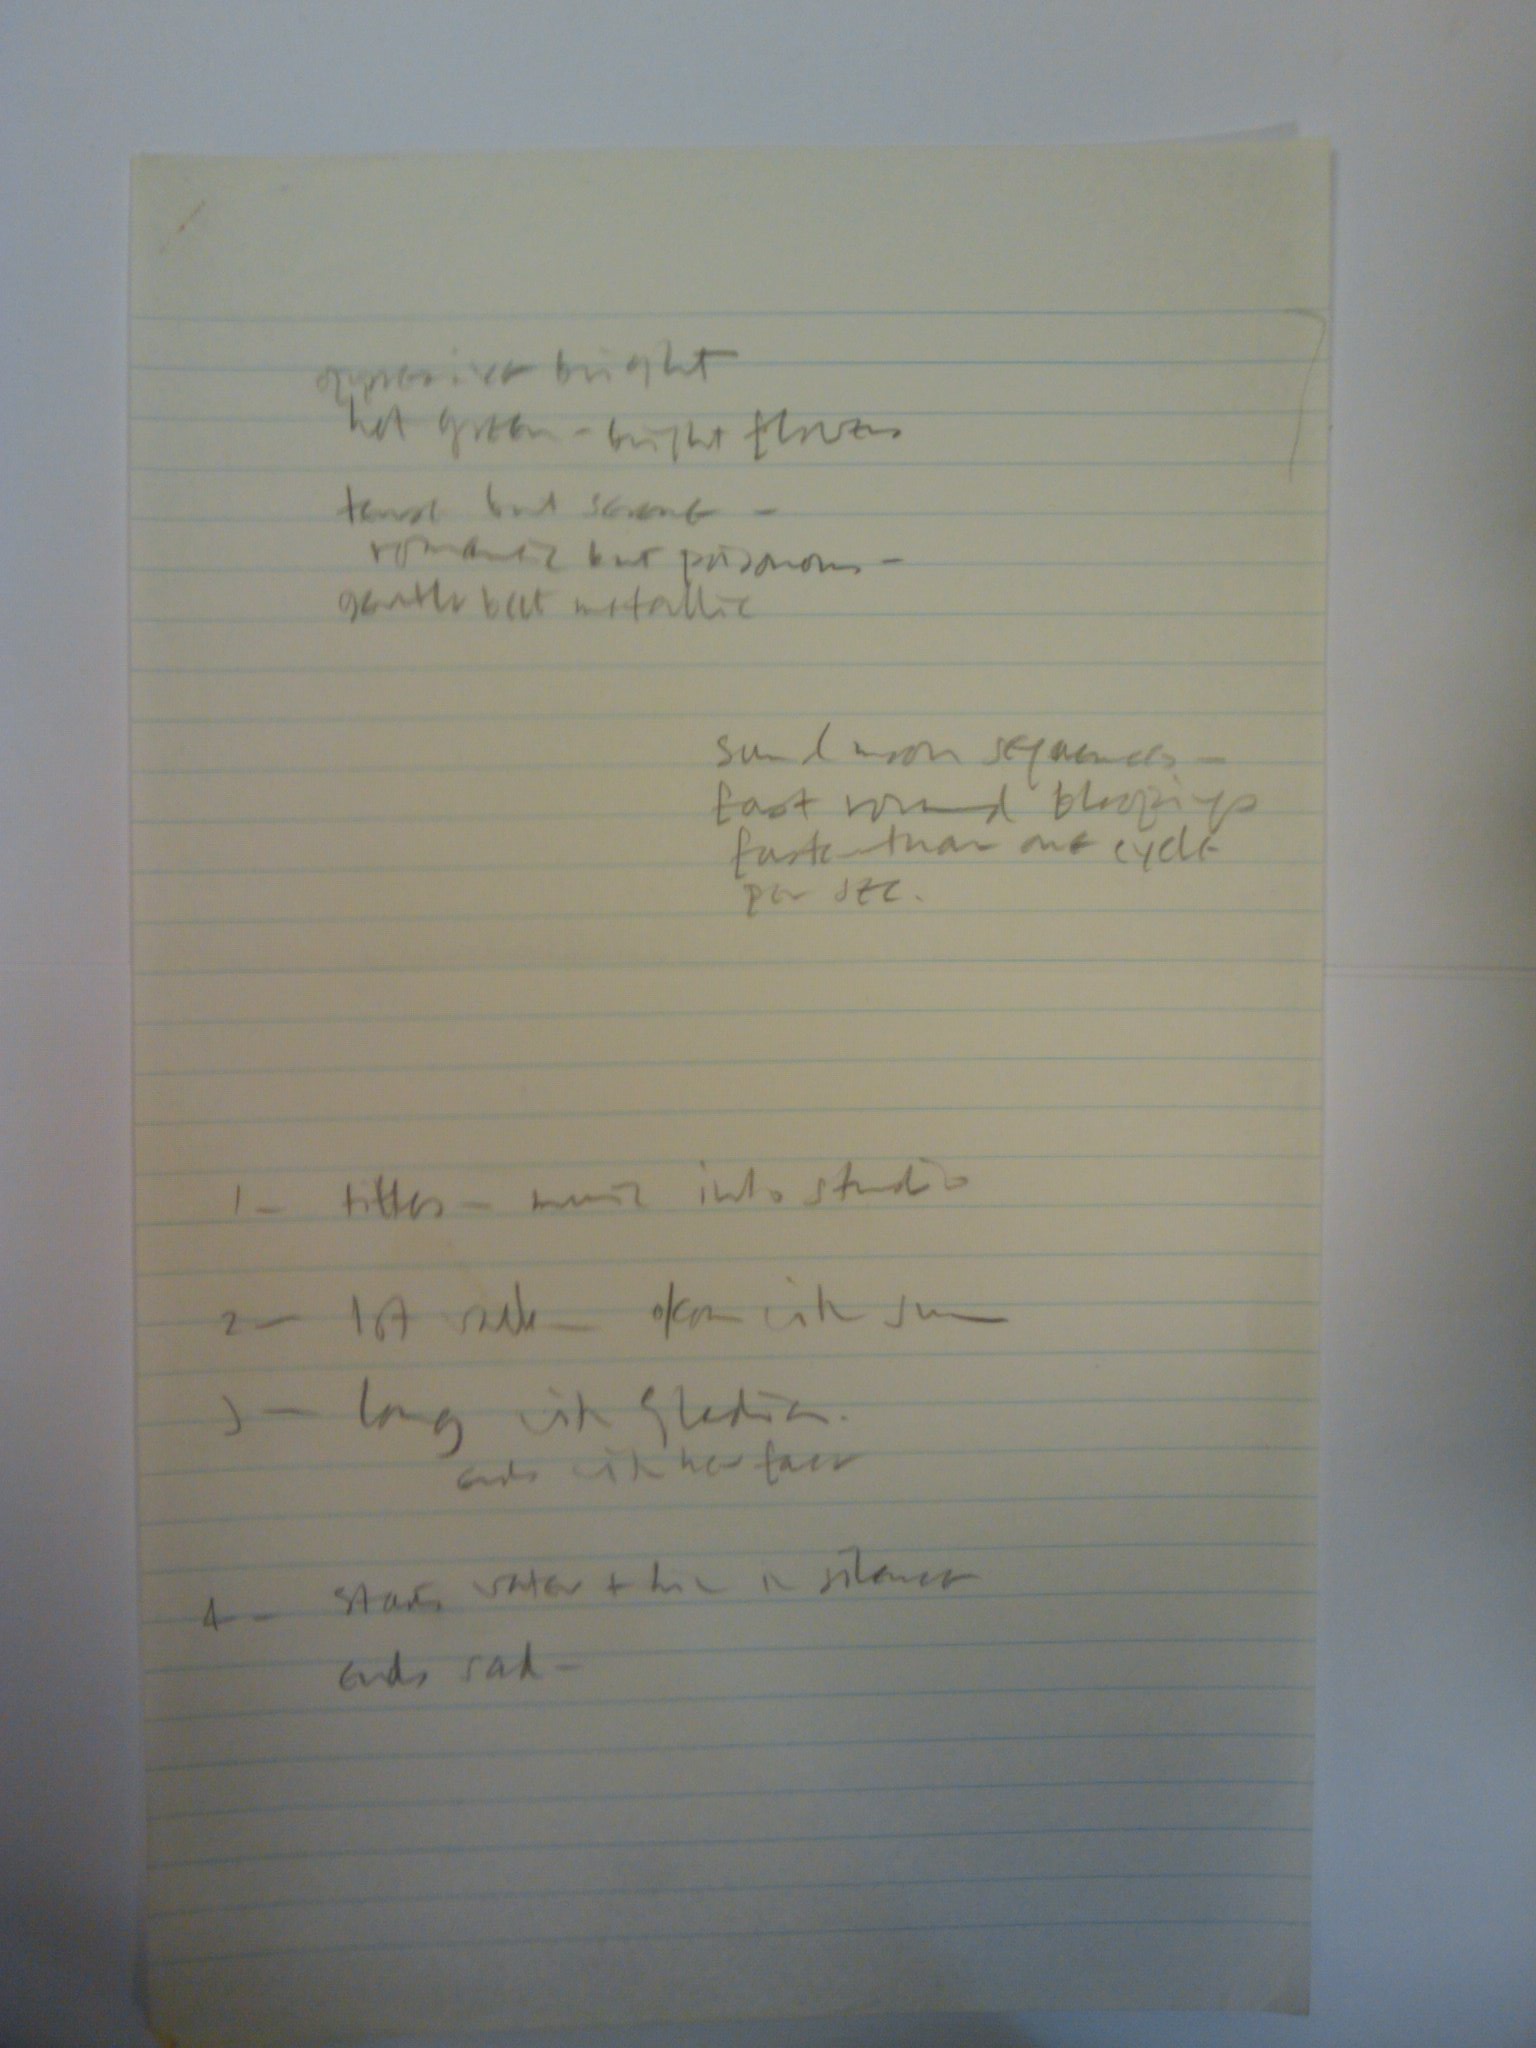 oppressive bright
hot green - bright flowers
tense but serene -
romantic but poisonous -
gentle but metallic
sun / moon sequences -
fast round bloopings
faster than one cycle
per sec.
1 - titles - music into studio
2 - 1st walk - with sun
3 - long with
ends with her face
4 - starts water + in silence
ends sad -